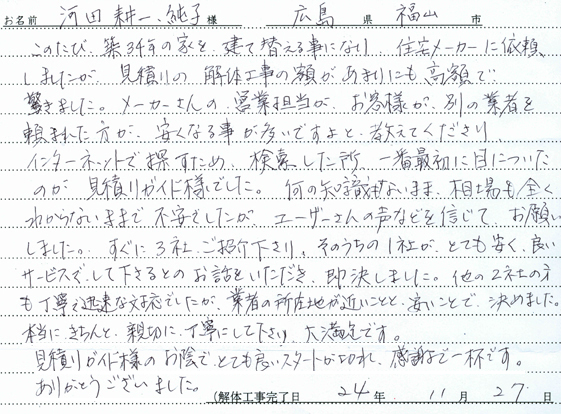 お名前 河田 耕一、純子 様 広島 県 福山 市
このたび、築34年の家を、建て替える事になり、住宅メーカーに依頼
しましたが、見積りの解体工事の額があまりにも高額で
驚きました。メーカーさんの営業担当が、お客様が、別の業者を
頼まれた方が、安くなる事が多いですよと、教えてくださり、
インターネットで探すため、検索した所、一番最初に目についた
のが見積りガイド様でした。何の知識もないまま、相場も全く
わからないままで不安でしたが、ユーザーさんの声などを信じて、お願い
しました。すぐに3社、ご紹介下さり、そのうちの1社が、とても安く、良い
サービスでして下さるとのお話をいただき、即決しました。他の2社の方
も丁寧で迅速な対応でしたが、業者の所在地が近いことと、安いことで決めました。
本当にきちんと、親切に、丁寧にして下さり、大満足です。
見積りガイド様のお陰で、とても良いスタートが切れ、感謝で一杯です。
ありがとうございました。
(解体工事完了日 24年 11月 27日